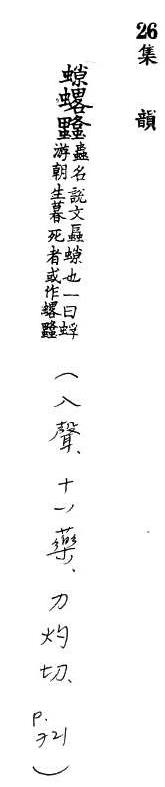 26 集韻
䗉
蟲名說文也一曰蜉
游朝生暮死者或作䗉
（入聲、十八藥、力灼切、
P.
721）